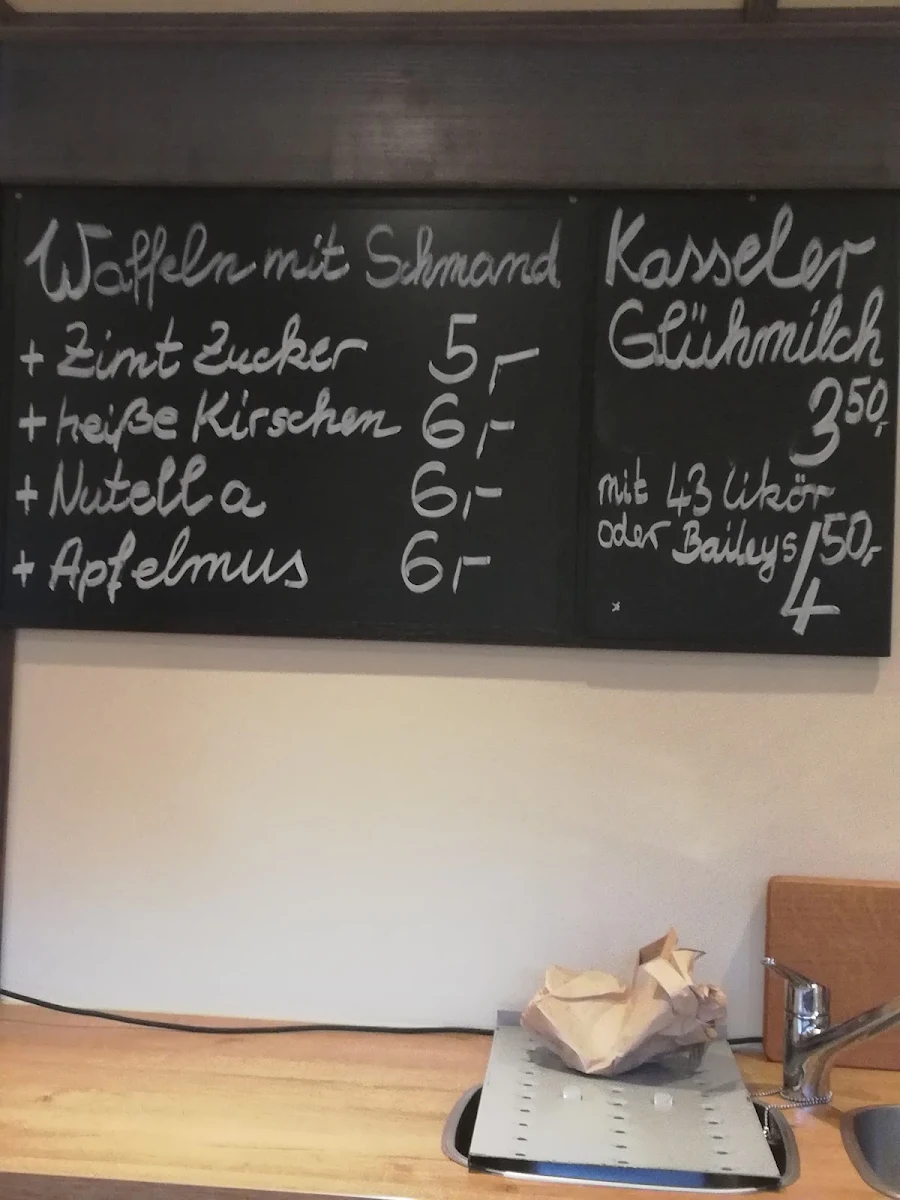 Waffeln mit Schmand
+ Zimt Zucker 5,-
+ heiße Kirschen 6,-
+ Nutella 6,-
+ Apfelmus 6,-
Kasseler
Glühmilch
3 50,
mit 43 Likör
oder Baileys
4 50,-